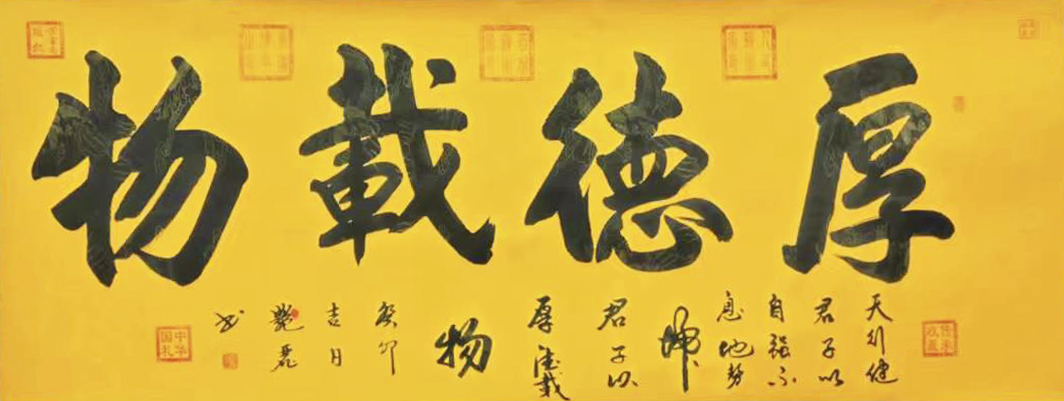 厚德載物
天行健
君子以
自强不
息地勢
坤
君子以
厚德載
物
癸卯
吉月
艷
书
中华
国礼